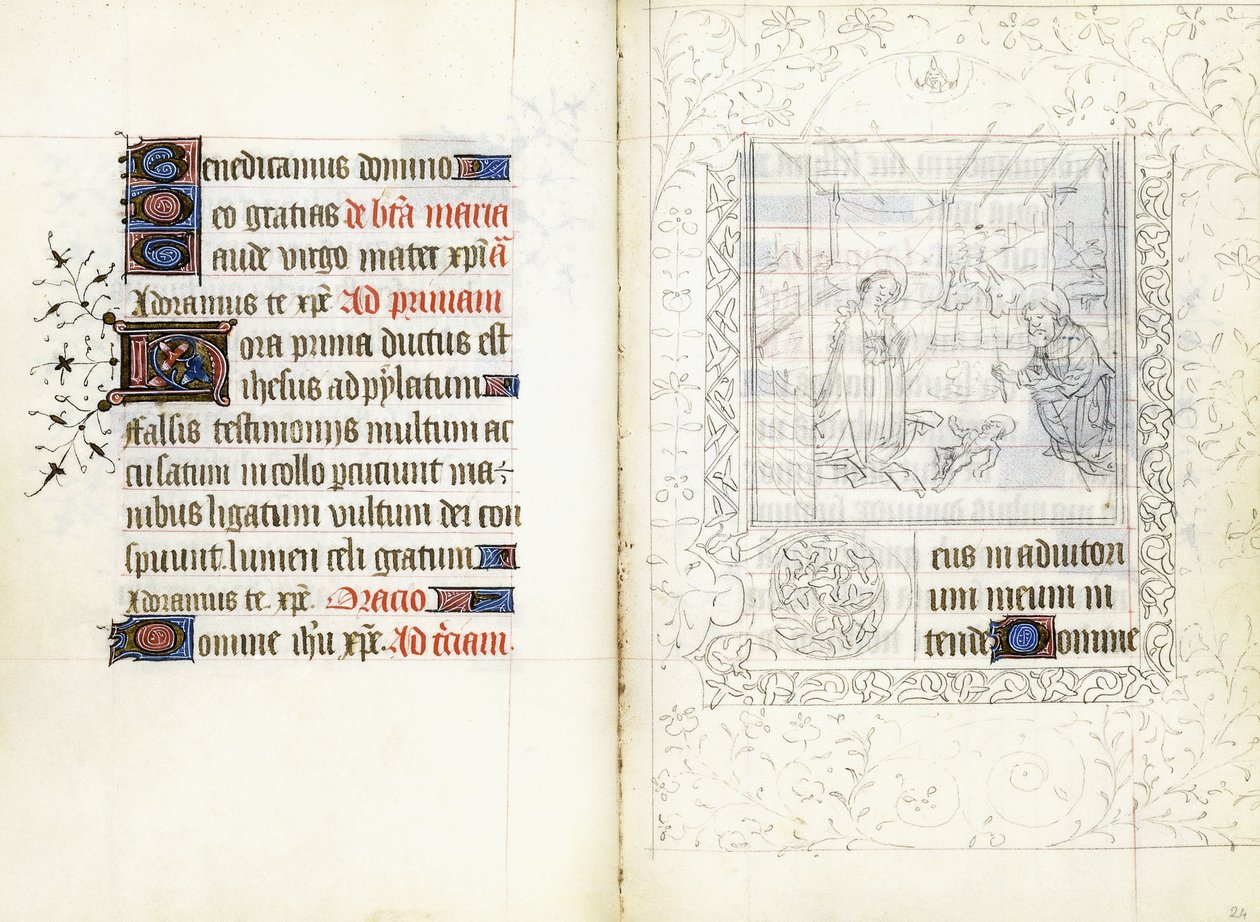 Benedicamus domino
Deo gratias de bt̃a maria
Gaude virgo mater xp̃i ã
Adoramus te xp̃e Ad primam
Hora prima ductus est
ihesus ad pylatum
ffalsis testimonijs multum ac
cusatum in collo p̃cuciunt ma-
nibus ligatum vultum dei con
spuunt. lumen celi gratum
Adoramus te. xp̃e. Oracio
Domine ihũ xp̃e. Ad t̃ciam.
Deus in adiutori
um meum in
tende Domine
24